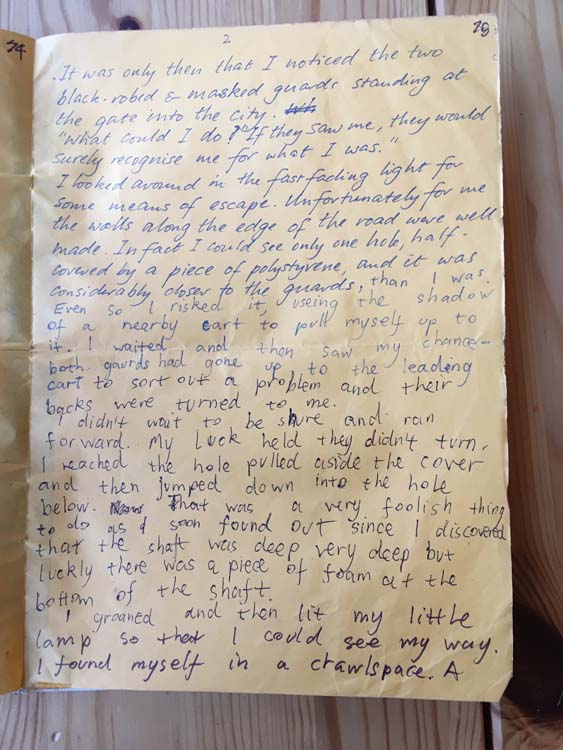 24
2
25
.It was only then that I noticed the two
black-robed & masked guards standing at
the gate into the city.
"What could I do?" "If they saw me, they would
surely recognise me for what I was."
I looked around in the fast fading light for
some means of escape. Unfortunately for me
the walls along the edge of the road were well
made. In fact I could see only one hole, half-
covered by a piece of polystyrene, and it was
considerably closer to the guards, than I was.
Even so I risked it, useing the shadow
of a nearby cart to pull myself up to
it. I waited and then saw my chance-
both gaurds had gone up to the leading
cart to sort out a problem and their
backs were turned to me.
I didn't wait to be shure and ran
forward. My luck held they didn't turn,
I reached the hole pulled aside the cover
and then jumped down into the hole
below. That was a very foolish thing
to do as I soon found out since I discovered
that the shaft was deep very deep but
luckly there was a piece of foam at the
bottom of the shaft.
I groaned and then lit my little
lamp so that I could see my way.
I found myself in a crawlspace. A